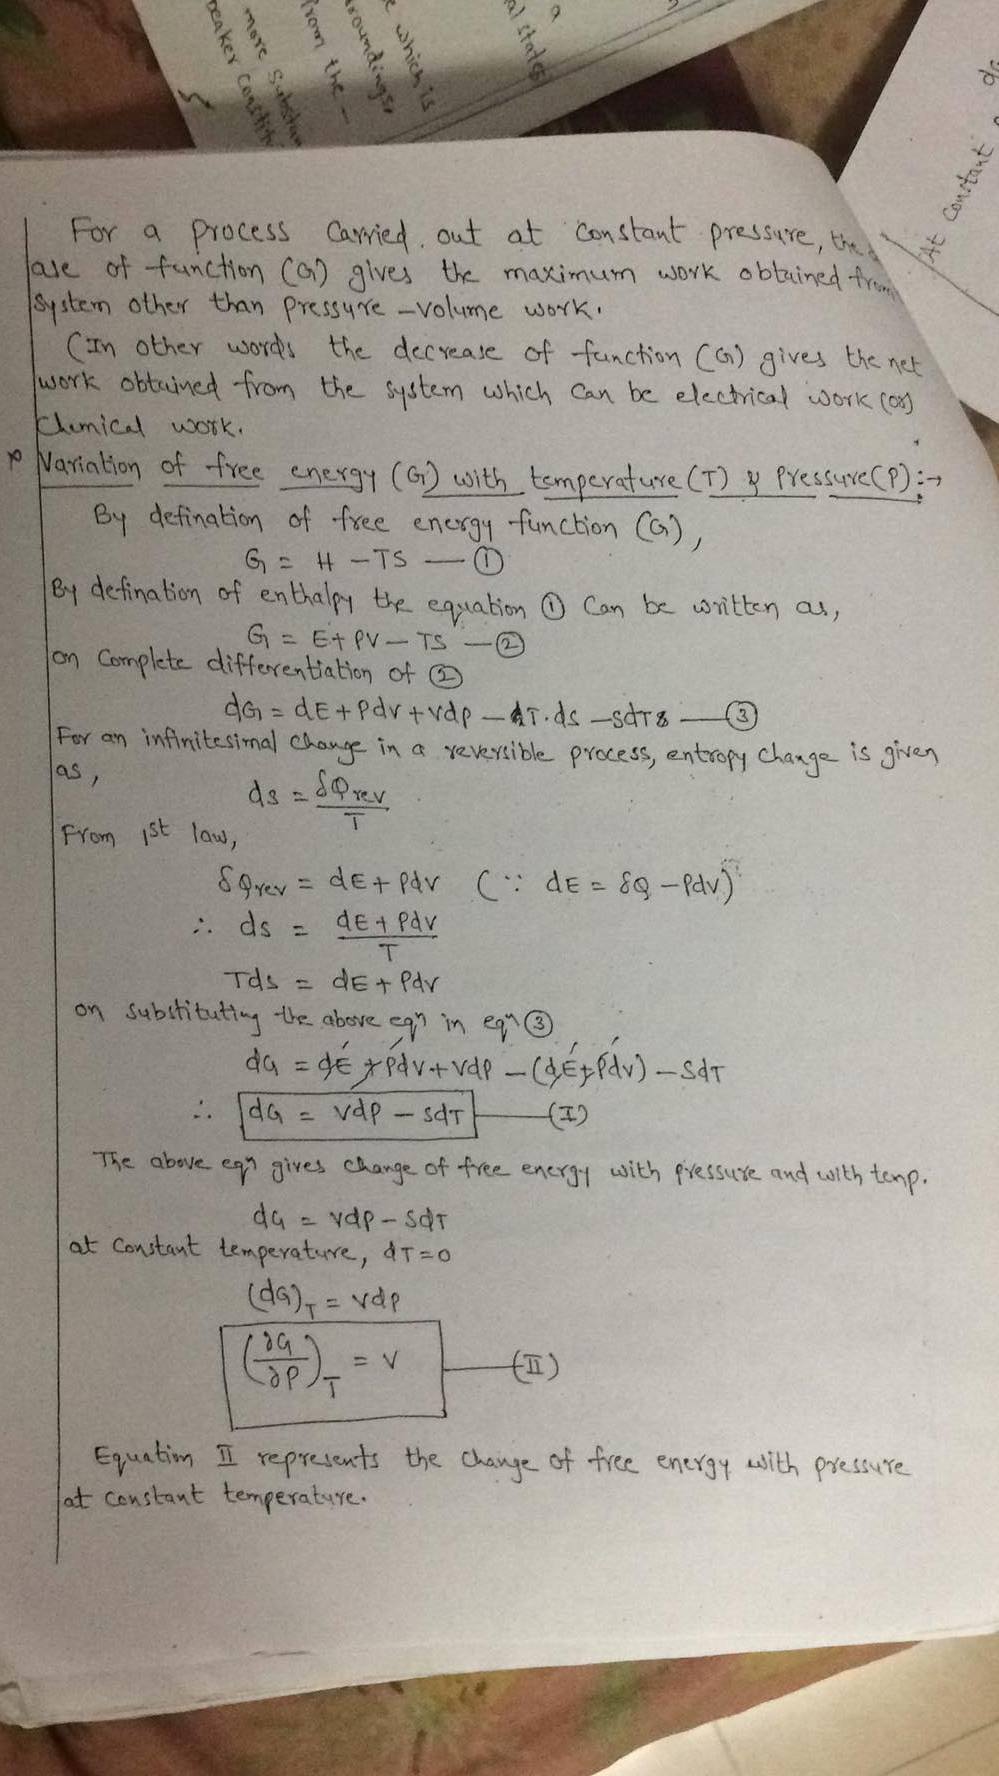 a
al states
e which is
roundings.
from the —
more Substan
eaker Constit
At Constant
For a process Carried out at constant pressure, the
ase of function (G) gives the maximum work obtained from
System other than pressure - volume work.
(In other words the decrease of function (G) gives the net
work obtained from the system which can be electrical work (or)
Chemical work.
Variation of free energy (G) with temperature (T) & Pressure(P) :→
By defination of free energy function (G),
G = H - TS — ①
By defination of enthalpy the equation ① Can be written as,
G = E + PV - TS — ②
on Complete differentiation of ②
dG = dE + Pdv + vdp - T.ds - sdT — ③
For an infinitesimal change in a reversible process, entropy change is given
as,
ds = δQrev / T
From 1st law,
δQrev = dE + Pdv (∵ dE = δQ - Pdv)
∴ ds = dE + Pdv / T
Tds = dE + Pdv
on substituting the above eqn in eqn ③
dG = dE + Pdv + vdp - (dE + Pdv) - SdT
∴ dG = vdp - sdT — (I)
The above eqn gives change of free energy with pressure and with temp.
dG = vdp - sdT
at Constant temperature, dT = 0
(dG)T = vdp
(∂G/∂P)T = V — (II)
Equation II represents the change of free energy with pressure
at constant temperature.